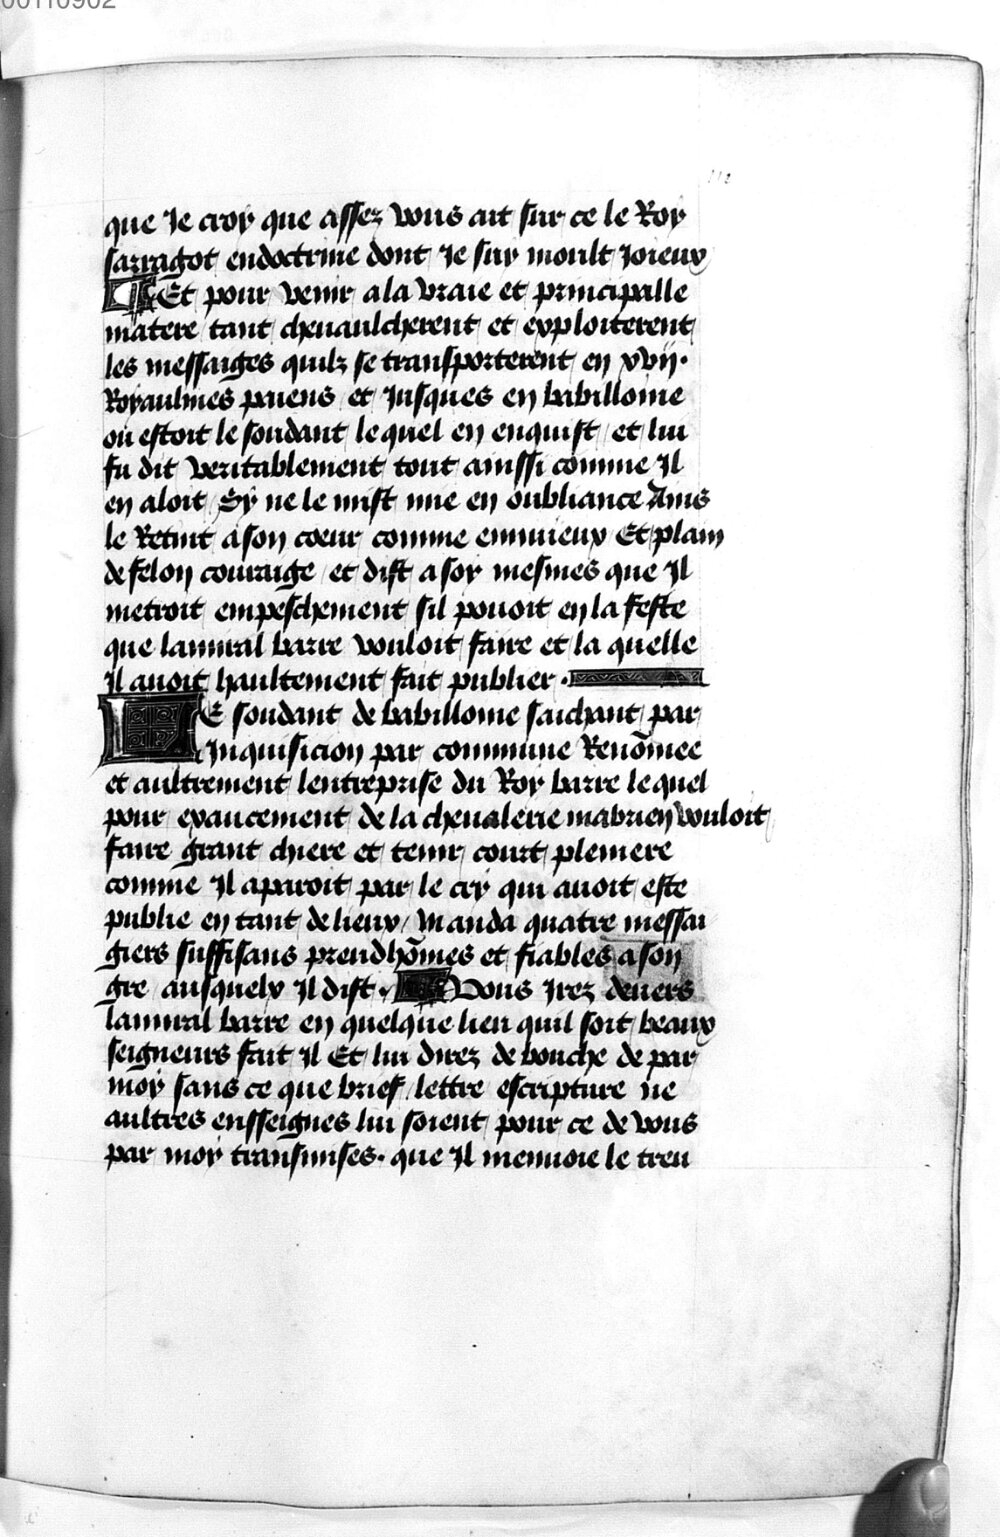 00110902
112
que Je croy que assez vous ait sur ce le Roy
sarragot endoctrine dont Je suy moult Joieux
Et pour venir a la vraie et principalle
matere tant cheuaulcherent et exploiterent
les messaiges quilz se transporterent en xvij.
Royaulmes paiens et Jusques en babillonne
ou estoit le soudant lequel en enquist et lui
fu dit veritablement tout ainssi comme Il
en aloit Sy ne le mist mie en oubliance Ains
le Retint a son coeur comme ennuieux Et plain
de felon couraige et dist a soy mesmes que Il
metroit empeschement sil pouoit en la feste
que lamiral barre vouloit faire et la quelle
Il auoit haultement fait publier .
LE soudant de babillonne saichant par
Inquisicion par commune Renōmee
et aultrement lentreprise du Roy barre le quel
pour exaucement de la cheualerie mabrien vouloit
faire grant chiere et tenir court pleniere
comme Il aparoit par le cry qui auoit este
publie en tant de lieux / manda quatre messai
giers suffisans preudhōmes et fiables a son
gre ausquelx Il dist . Vous Irez deuers
lamiral barre en quelque lieu quil soit beaux
seigneurs fait Il Et lui direz de bouche de par
moy sans ce que brief lettre escripture ne
aultres ensseignes lui soient pour ce de vous
par moy transmises . que Il menuoie le treu